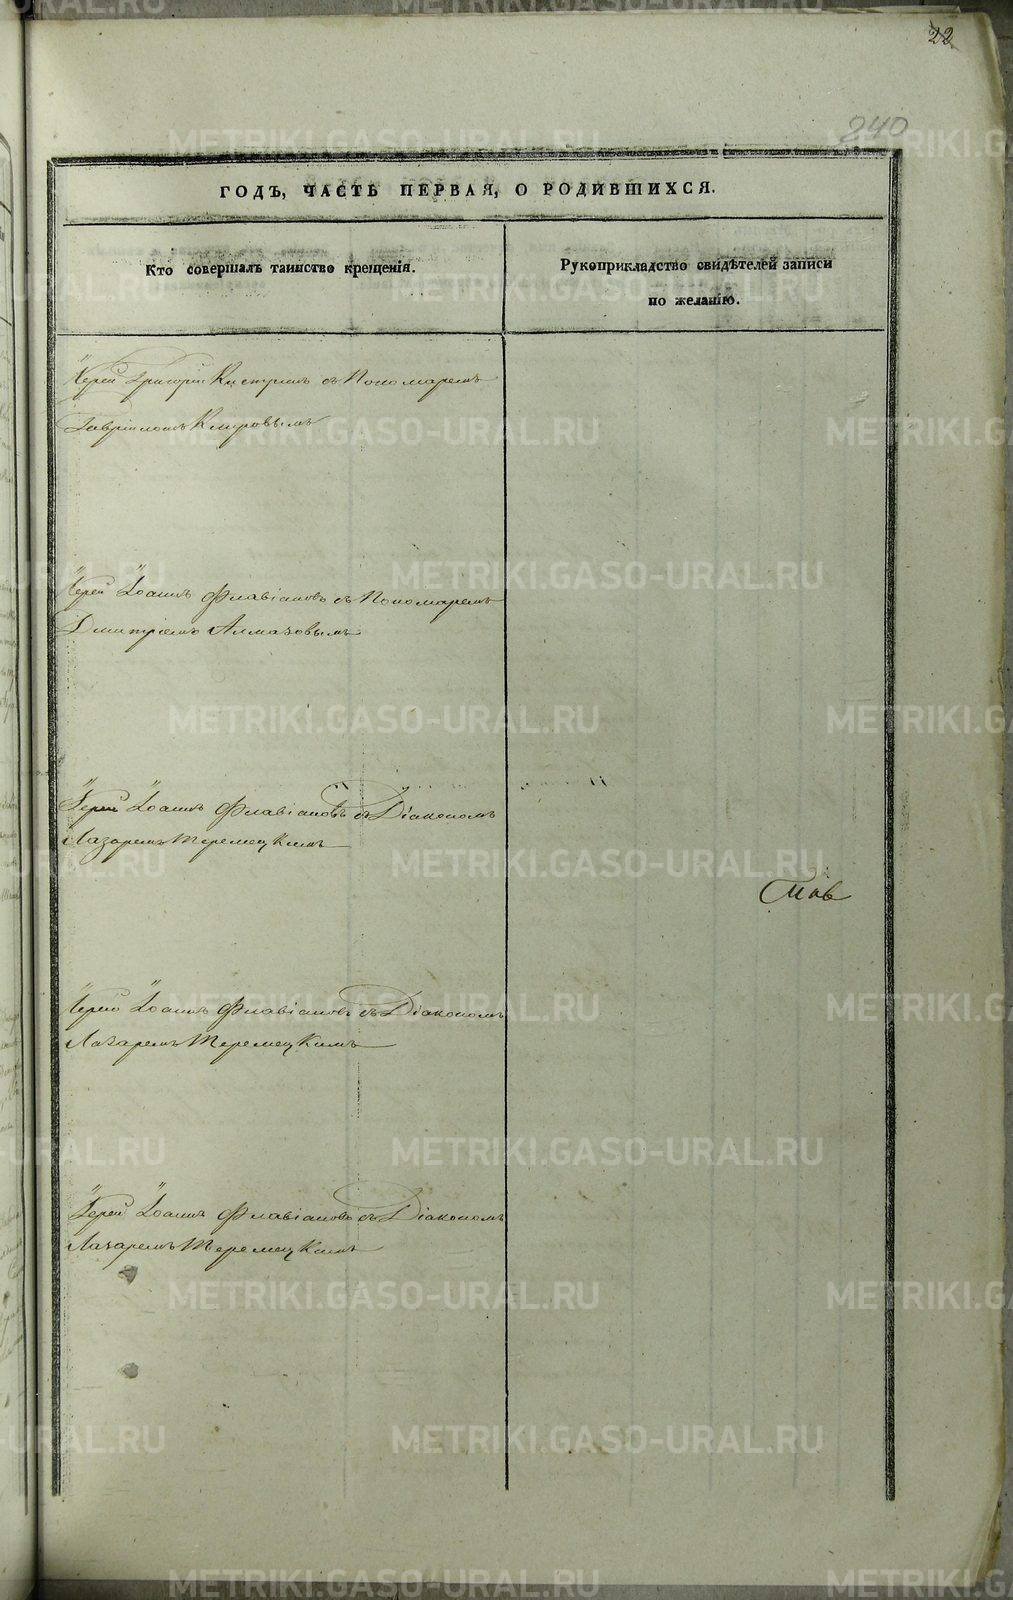 22
240
ГОДЪ, ЧАСТЬ ПЕРВАЯ, О РОДИВШИХСЯ.
Кто совершалъ таинство крещенія.
Рукоприкладство свидѣтелей записи
по желанію.
Іерей Григорій съ Пономаремъ
Гавріиломъ Кировымъ
Іерей Іоаннъ Флавіановъ съ Пономаремъ
Дмитріемъ Алмазовымъ
Іерей Іоаннъ Флавіановъ съ Діакономъ
Лазаремъ Теремецкимъ
Іерей Іоаннъ Флавіановъ съ Діакономъ
Лазаремъ Теремецкимъ
Іерей Іоаннъ Флавіановъ съ Діакономъ
Лазаремъ Теремецкимъ
METRIKI.GASO-URAL.RU